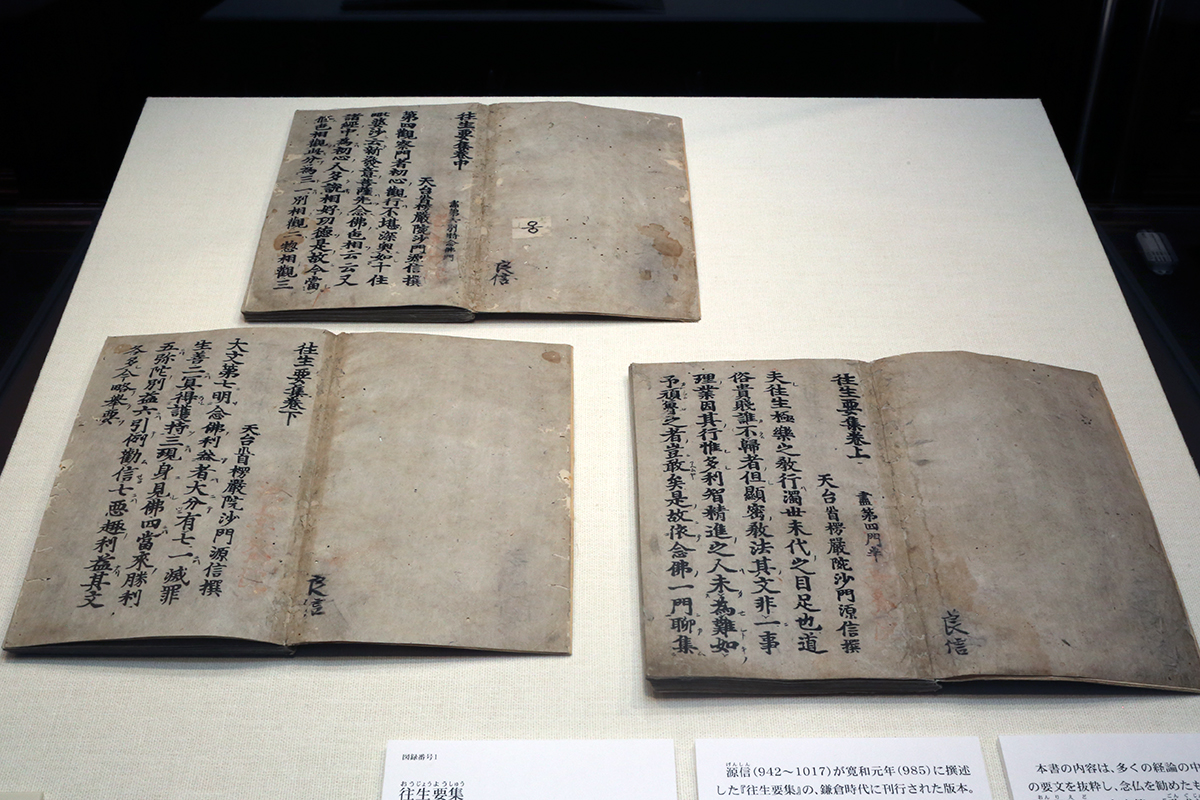 往生要集卷中
盡第六別時念佛門
天台首楞嚴院沙門源信撰
第四觀察門者初心觀行不堪深奧如十住
毗婆沙云新發意菩薩先念佛色相云云又
諸經中為初心人多說相好功德是故今當
色相觀此分為三一別相觀二惣相觀三
良信
往生要集卷下
天台首楞嚴院沙門源信撰
大文第七明念佛利益者大分有七一滅罪
生善二冥得護持三現身見佛四當來勝利
五弥陀別益六引例勸信七惡趣利益其文
各多今略舉要
良信
往生要集卷上
盡第四門半
天台首楞嚴院沙門源信撰
夫往生極樂之教行濁世末代之目足也道
俗貴賤誰不歸者但顯密教法其文非一事
理業因其行惟多利智精進之人未為難如
予頑魯之者豈敢矣是故依念佛一門聊集
良信
図録番号1
おうじょうようしゅう
往生要集
げんしん
源信(942〜1017)が寛和元年(985)に撰述
した『往生要集』の、鎌倉時代に刊行された版本。
本書の内容は、多くの経論の中
の要文を抜粋し、念仏を勧めたも